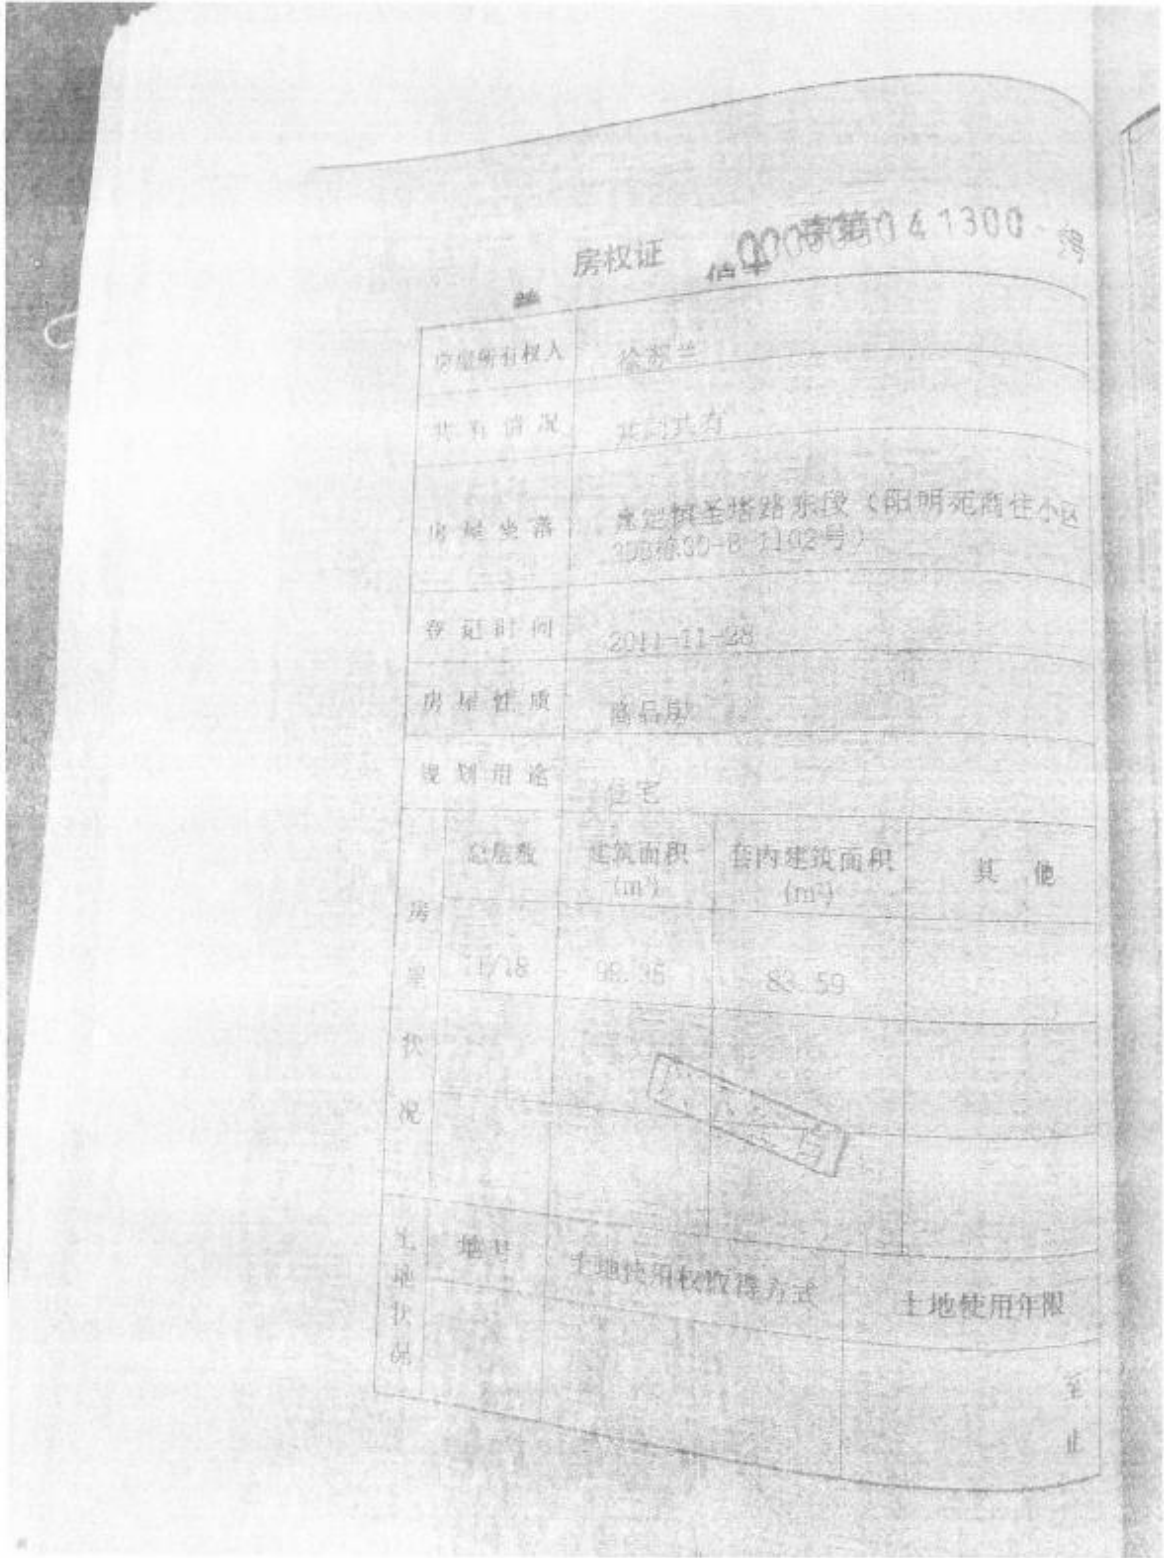 房权证 字第 041300 号
房屋所有权人 徐 兰
共有情况 共同共有
房屋坐落 嘉定镇圣塔路东段(阳明苑商住小区
1102号)
登记时间 2011-11-28
房屋性质 商品房
规划用途 住宅
房屋状况
总层数 建筑面积(m²) 套内建筑面积(m²) 其 他
11/18 83.59
土地状况
地号 土地使用权取得方式 土地使用年限
至
止